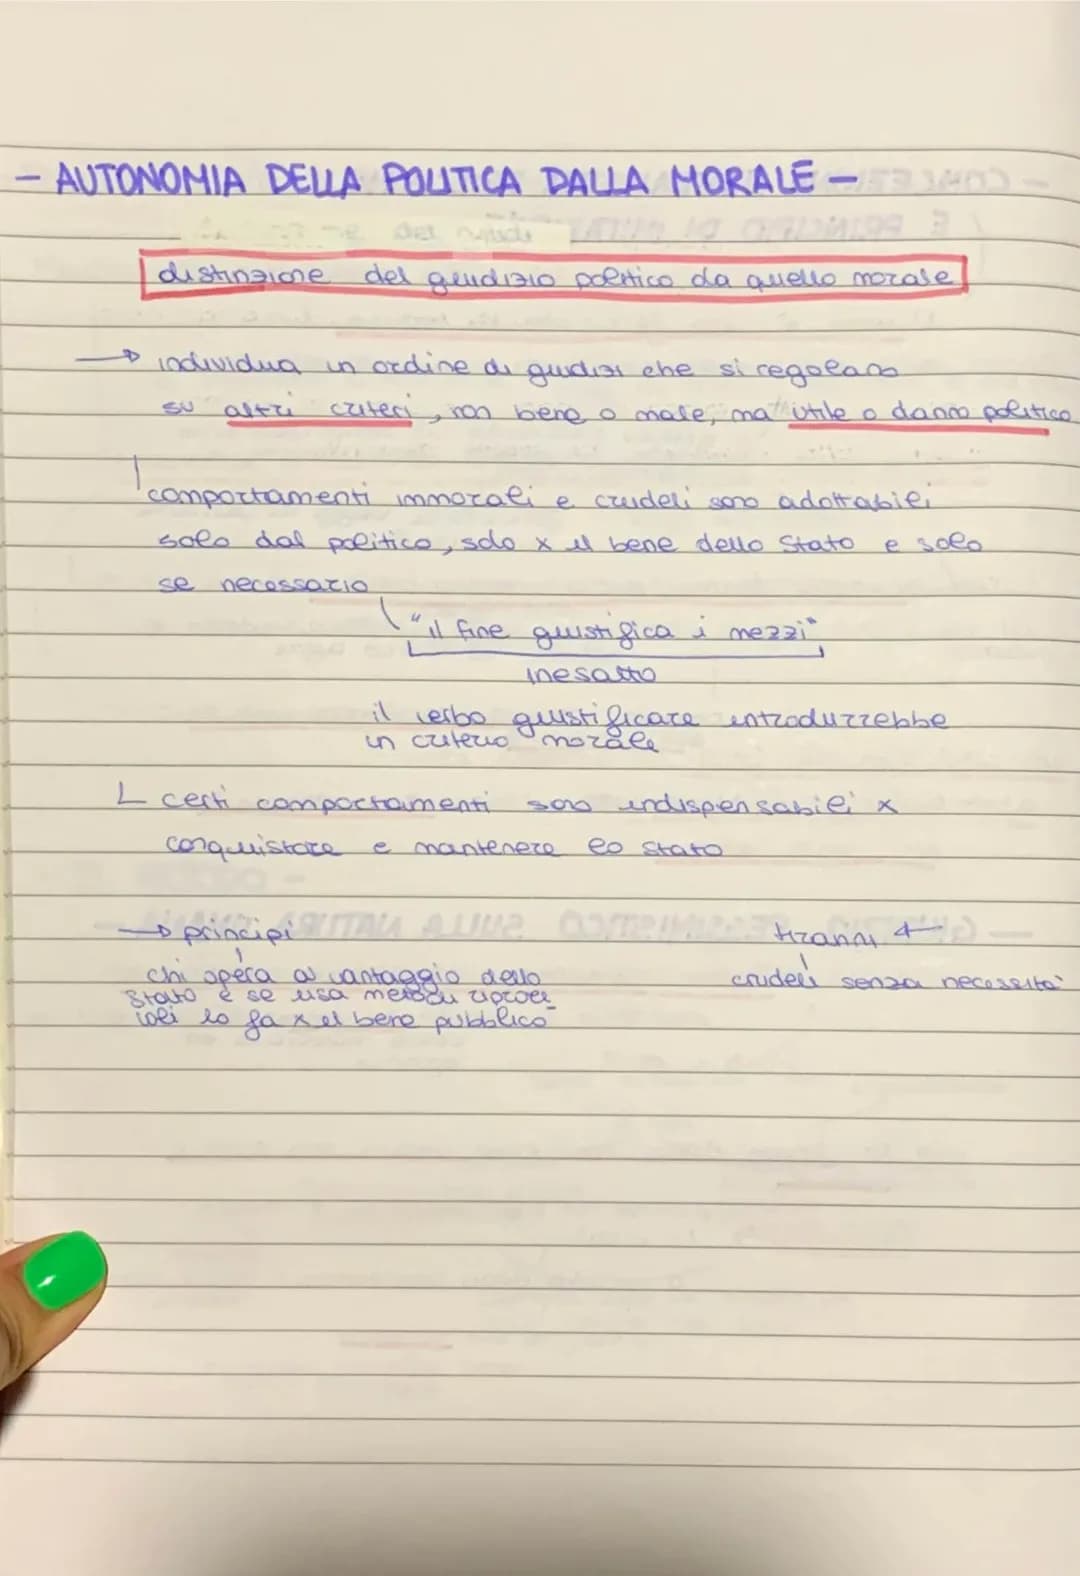 - AUTONOMIA DELLA POLITICA DALLA MORALE -
distinzione del giudizio politico da quello morale
→ individua un ordine di giudizi che si regolano
su altri criteri, non bene o male, ma utile o danno politico
comportamenti immorali e crudeli sono adottabili
solo dal politico, solo x il bene dello Stato e solo
se necessario
"il fine giustifica i mezzi"
inesatto
il verbo giustificare introdurrebbe
un criterio morale
certi comportamenti sono indispensabili x
conquistare e mantenere lo stato
→ principi tiranni ←
chi opera a vantaggio dello crudeli senza necessità
Stato e se usa metodi riprove
voli lo fa x il bene pubblico